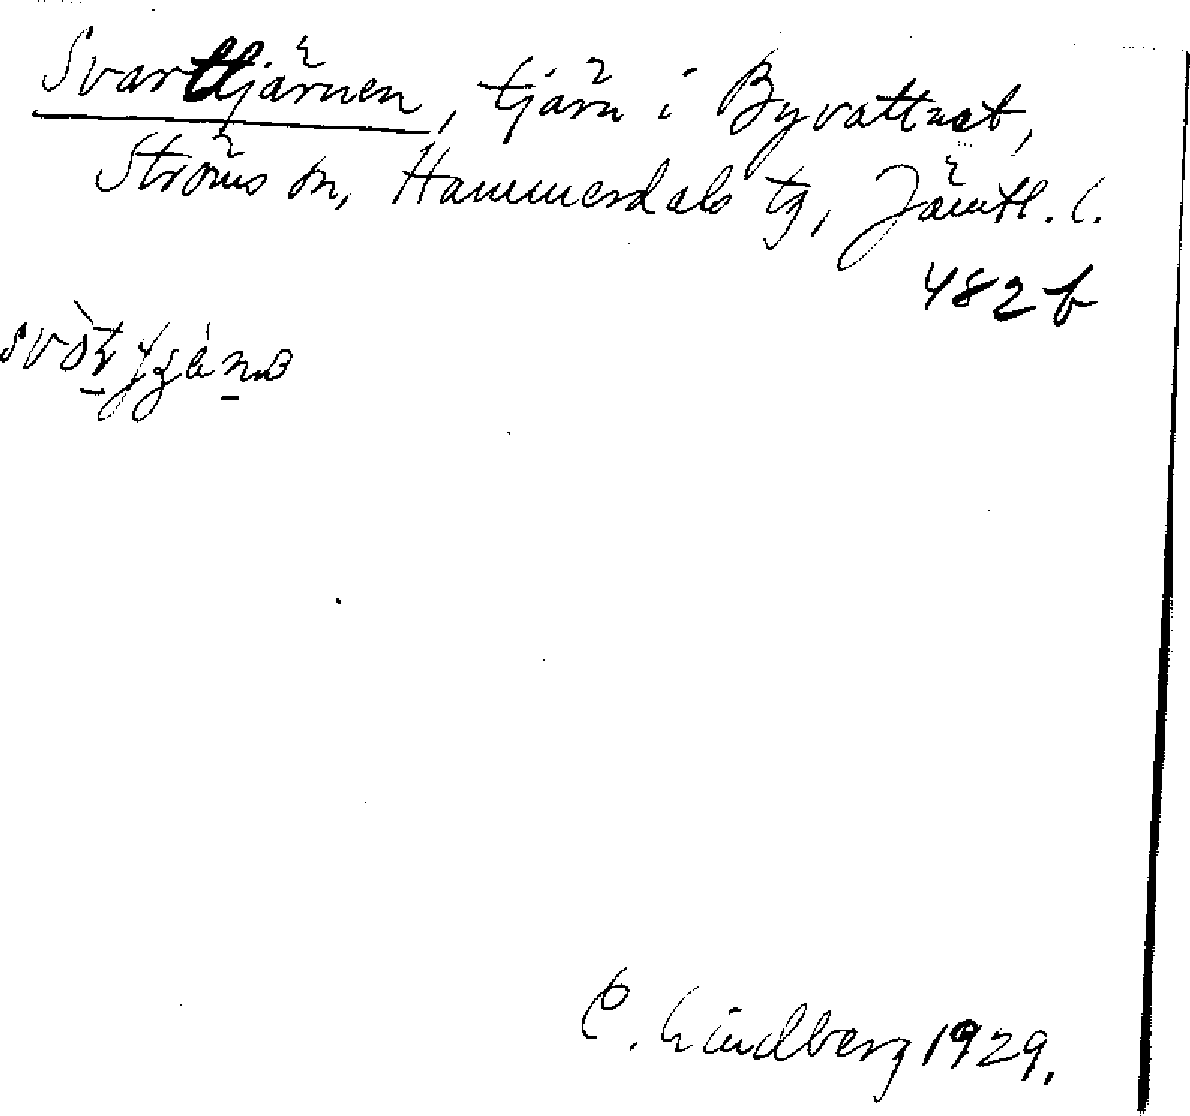 Svarttjärnen, tjärn i Byvattnet,
Ströms sn, Hammerdals tg, Jämtl. l.
482 b
C. Lindberg 1929.